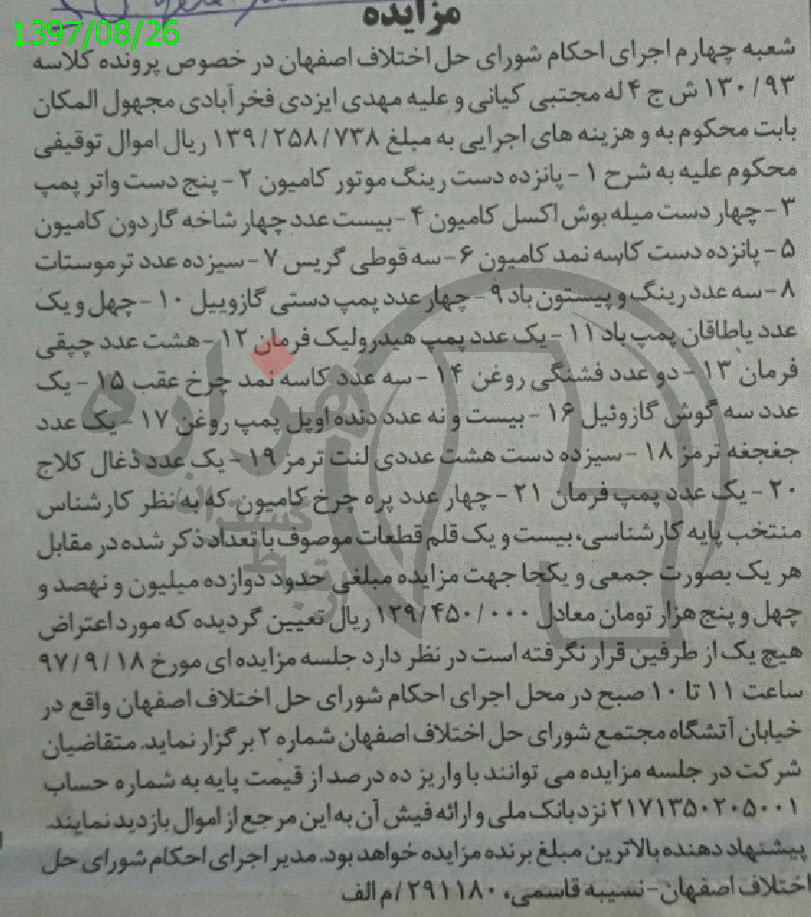 1397/08/26
مزایده
شعبه چهارم اجرای احکام شورای حل اختلاف اصفهان در خصوص پرونده کلاسه
۱۳۰/۹۳ ش ج ۴ له مجتبی کیانی و علیه مهدی ایزدی فخرآبادی مجهول المکان
بابت محکوم به و هزینه های اجرایی به مبلغ ۱۳۹/۲۵۸/۷۳۸ ریال اموال توقیفی
محکوم علیه به شرح ۱- پانزده دست رینگ موتور کامیون ۲- پنج دست واتر پمپ
۳- چهار دست میله بوش اکسل کامیون ۴- بیست عدد چهار شاخه گاردون کامیون
۵- پانزده دست کاسه نمد کامیون ۶- سه قوطی گریس ۷- سیزده عدد ترموستات
۸- سه عدد رینگ و پیستون باد ۹- چهار عدد پمپ دستی گازوییل ۱۰- چهل و یک
عدد یاطاقان پمپ باد ۱۱- یک عدد پمپ هیدرولیک فرمان ۱۲- هشت عدد چپقی
فرمان ۱۳- دو عدد فشنگی روغن ۱۴- سه عدد کاسه نمد چرخ عقب ۱۵- یک
عدد سه گوش گازوئیل ۱۶- بیست و نه عدد دنده اویل پمپ روغن ۱۷- یک عدد
جغجغه ترمز ۱۸- سیزده دست هشت عددی لنت ترمز ۱۹- یک عدد ذغال کلاج
۲۰- یک عدد پمپ فرمان ۲۱- چهار عدد پره چرخ کامیون که به نظر کارشناس
منتخب پایه کارشناسی، بیست و یک قلم قطعات موصوف با تعداد ذکر شده در مقابل
هر یک بصورت جمعی و یکجا جهت مزایده مبلغی حدود دوازده میلیون و نهصد و
چهل و پنج هزار تومان معادل ۱۲۹/۴۵۰/۰۰۰ ریال تعیین گردیده که مورد اعتراض
هیچ یک از طرفین قرار نگرفته است در نظر دارد جلسه مزایده ای مورخ ۹۷/۹/۱۸
ساعت ۱۱ تا ۱۰ صبح در محل اجرای احکام شورای حل اختلاف اصفهان واقع در
خیابان آتشگاه مجتمع شورای حل اختلاف اصفهان شماره ۲ برگزار نماید. متقاضیان
شرکت در جلسه مزایده می توانند با واریز ده درصد از قیمت پایه به شماره حساب
۲۱۷۱۳۵۰۲۰۵۰۰۱ نزد بانک ملی و ارائه فیش آن به این مرجع از اموال بازدید نمایند.
پیشنهاد دهنده بالاترین مبلغ برنده مزایده خواهد بود. مدیر اجرای احکام شورای حل
اختلاف اصفهان- نسیبه قاسمی، ۲۹۱۱۸۰/م الف
هزاره